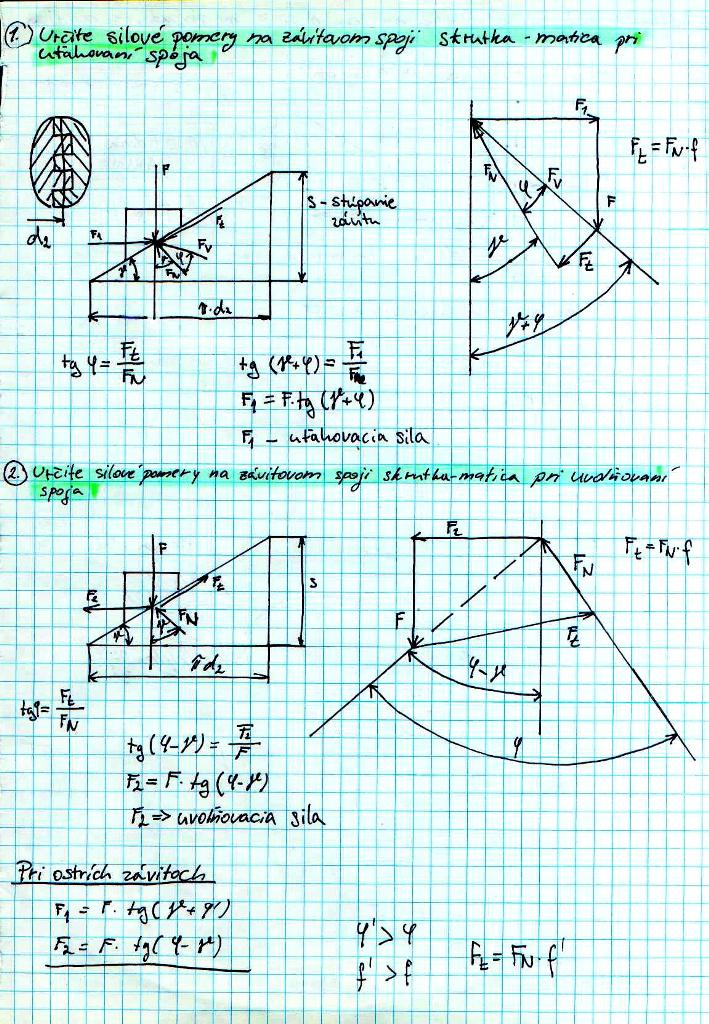 1. Určite silové pomery na závitovom spoji skrutka - matica pri
uťahovaní spoja
F₁
Fₜ = F_N · f
F_N
F_V
φ
F
Fₜ
γ
γ+φ
F
S - stúpanie
závitu
d₂
F₁
Fₜ
F_V
γ
γ
φ
F_N
π·d₂
tg φ = Fₜ/F_N
tg (γ+φ) =
F₁ = F·tg (γ+φ)
F₁ - uťahovacia sila
2. Určite silové pomery na závitovom spoji skrutka-matica pri uvoľňovaní
spoja
F₂
Fₜ = F_N · f
F_N
F
Fₜ
φ-γ
φ
F
S
F₂
Fₜ
F_N
γ
γ
π d₂
tgφ = Fₜ/F_N
tg (φ-γ) = F₁/F
F₂ = F · tg (φ-γ)
F₂ => uvoľňovacia sila
Pri ostrích závitoch
F₁ = F · tg (γ + φ')
F₂ = F · tg (φ-γ)
φ' > φ
f' > f
Fₜ = F_N · f'